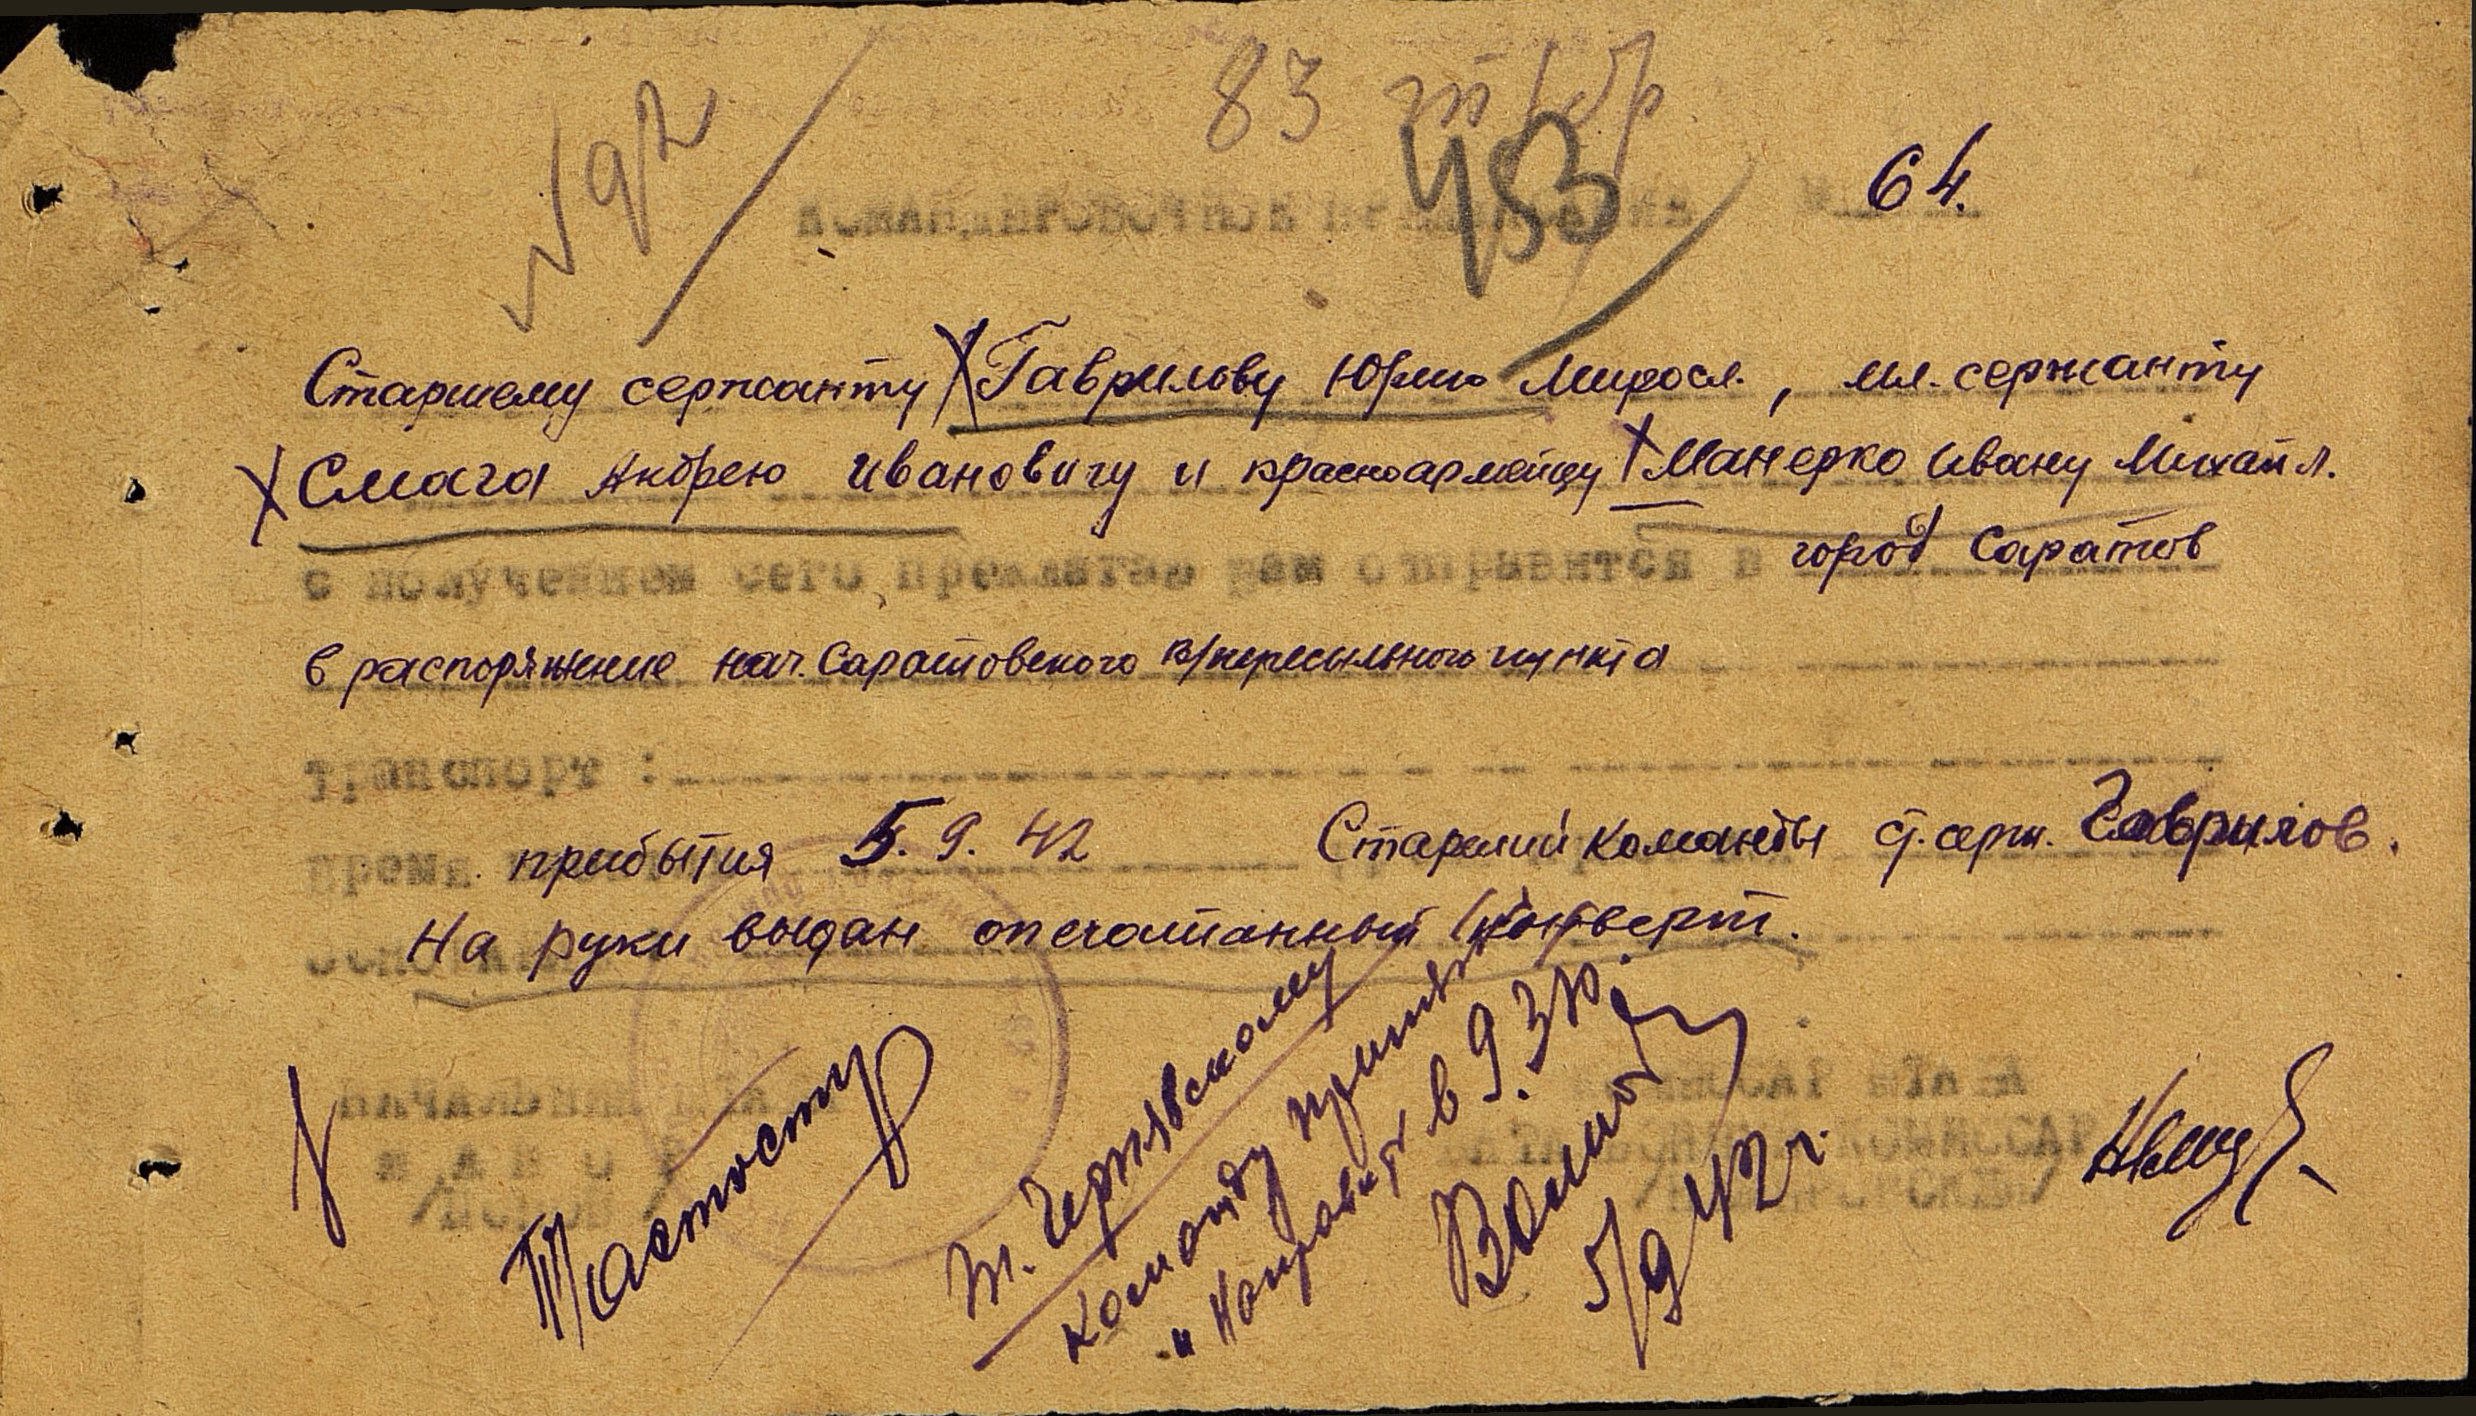 83 тбр
№92
453
КОМАНДИРОВОЧНОЕ ПРЕДПИСАНИЕ № 64.
Старшему сержанту Гаврилову Юрию Миросл., мл. сержанту
Смага Андрею Ивановичу и красноармейцу Манерко Ивану Михайл.
с получением сего предлагаю вам отправится в город Саратов
в распоряжение нач. Саратовского в/пересыльного пункта
транспорт :
время прибытия 5.9.42 Старший команды ст. серж. Гаврилов.
На руки выдан опечатанный конверт.
Т. Чернявскому
команду принять
и направить в 9.30.
5/9 42 г.
НАЧАЛЬНИК ШТАБА КОМИССАР ШТАБА
МАЙОР БАТАЛЬОННЫЙ КОМИССАР